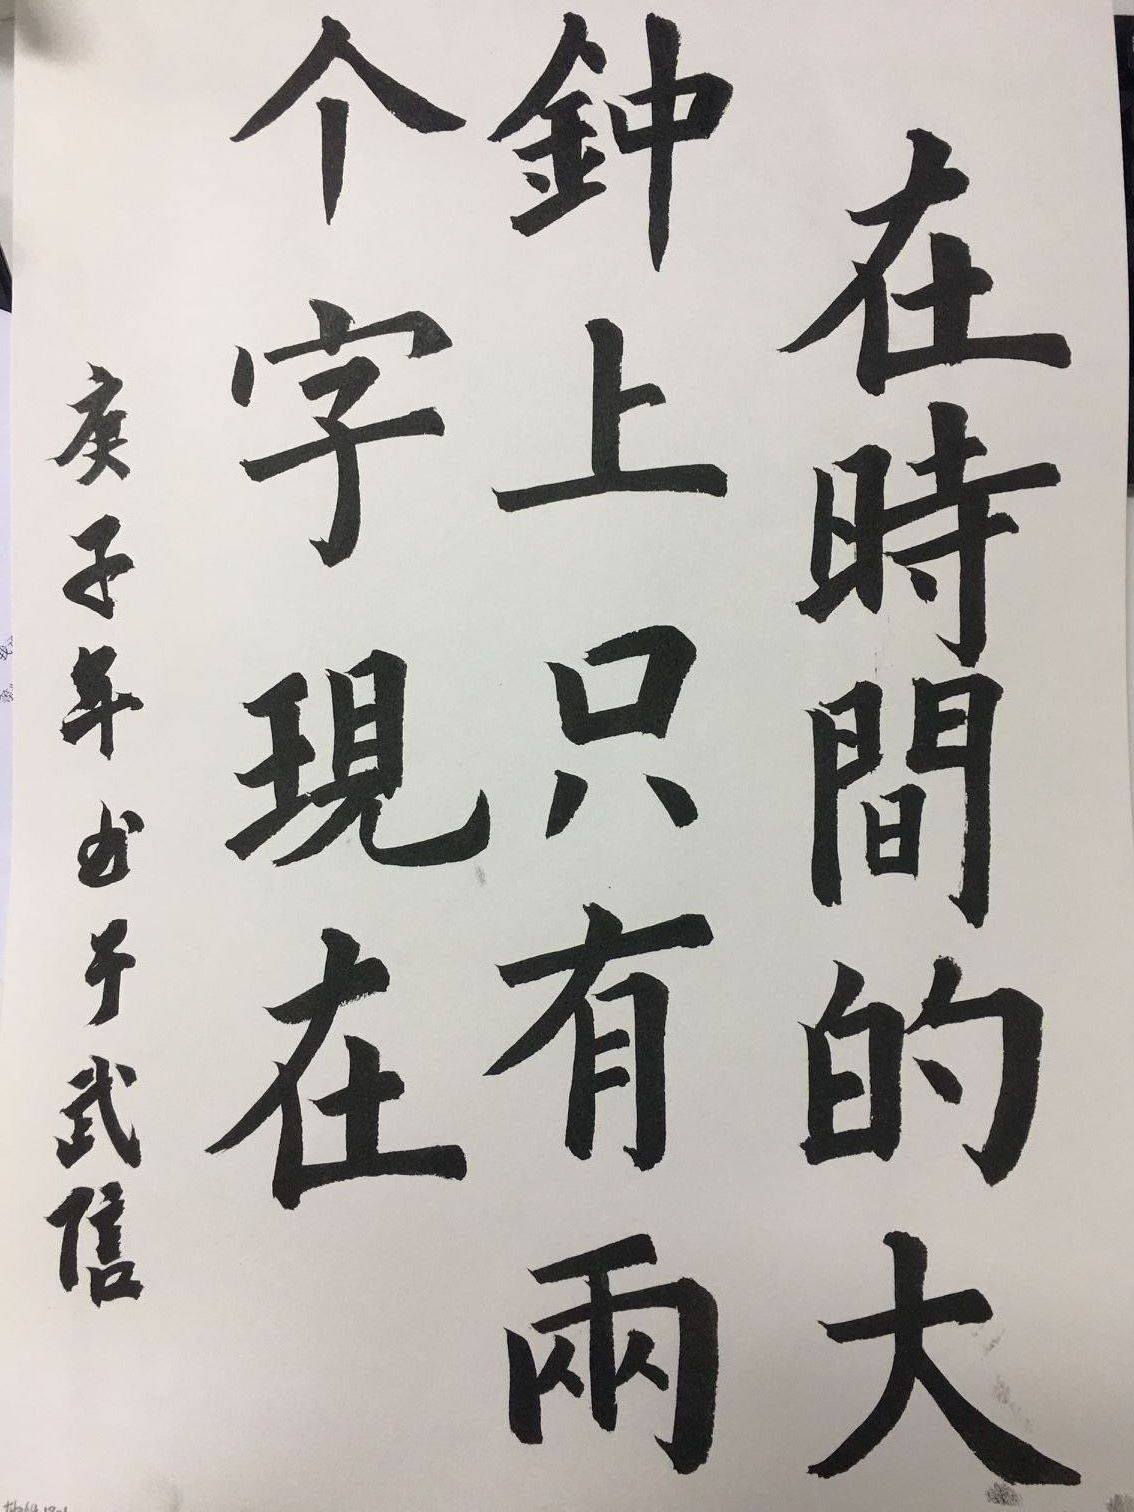 在時間的大
鈡上只有兩
个字現在
庚子年书于武信